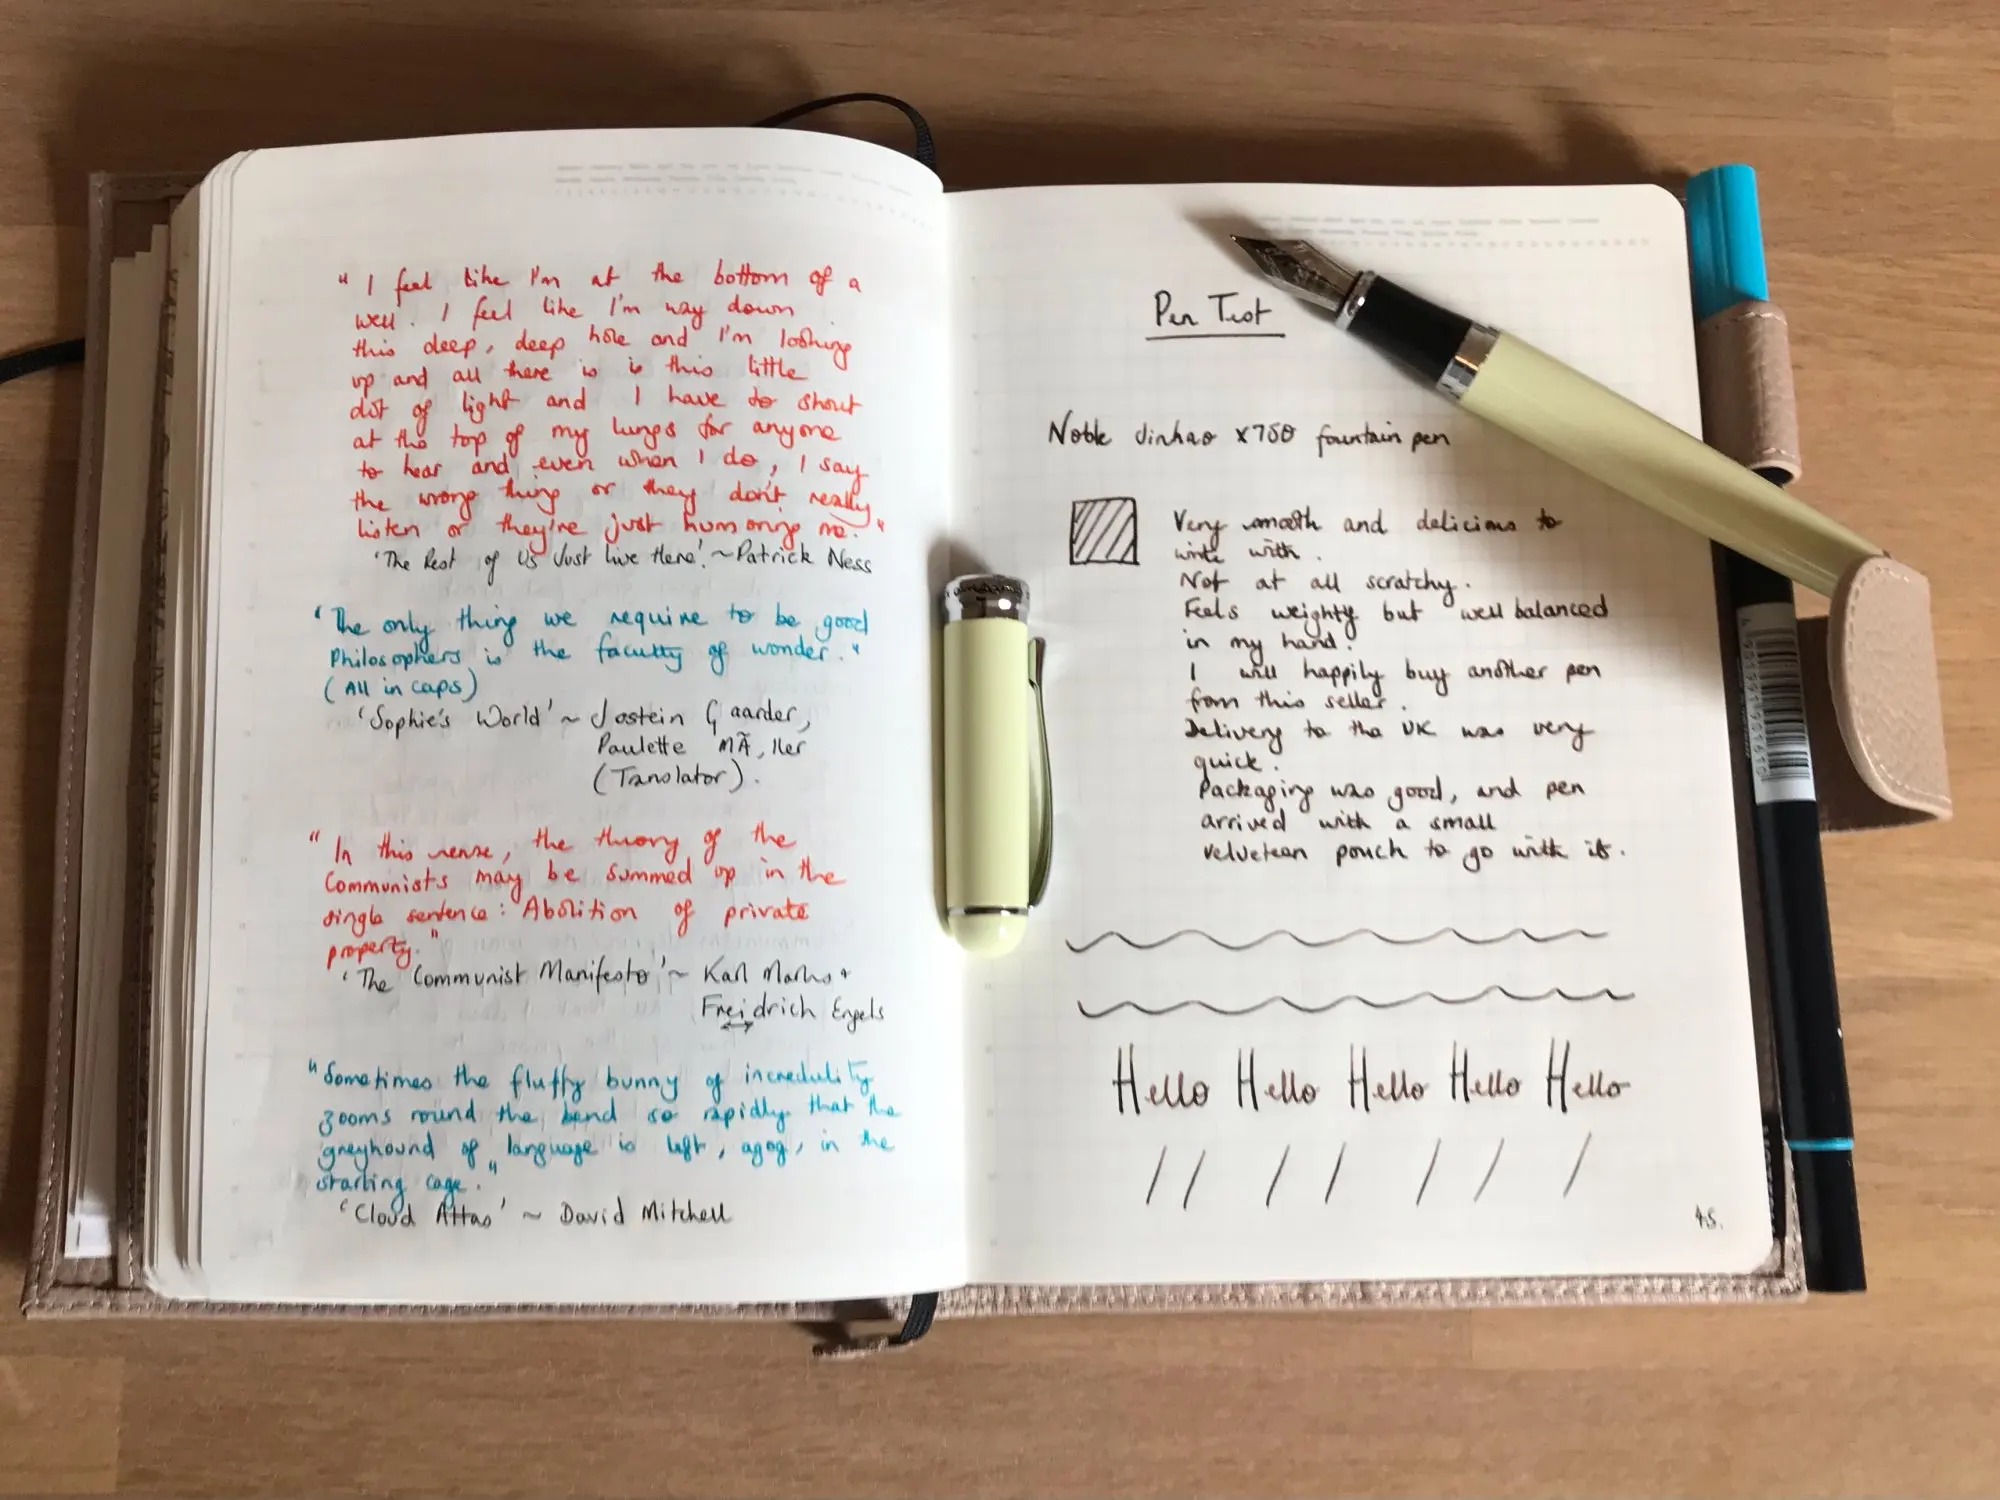 " I feel like I'm at the bottom of a
well. I feel like I'm way down
this deep, deep hole and I'm looking
up and all there is is this little
dot of light and I have to shout
at the top of my lungs for anyone
to hear and even when I do, I say
the wrong thing or they don't really
listen or they're just humoring me."
'The Rest of Us Just Live Here.' ~ Patrick Ness
'The only thing we require to be good
Philosophers is the faculty of wonder."
(All in caps)
'Sophie's World' ~ Jostein Gaarder,
Paulette MÃ,ller
(Translator).
"In this sense, the theory of the
Communists may be summed up in the
single sentence: Abolition of private
property."
'The Communist Manifesto' ~ Karl Marks +
Freidrich Engels
"Sometimes the fluffy bunny of incredulity
zooms round the bend so rapidly that the
greyhound of language is left, agog, in the
starting cage."
'Cloud Atlas' ~ David Mitchell
Pen Test
Noble Jinhao x750 fountain pen
Very smooth and delicious to
write with.
Not at all scratchy.
Feels weighty but well balanced
in my hand.
I will happily buy another pen
from this seller.
Delivery to the UK was very
quick.
Packaging was good, and pen
arrived with a small
velveteen pouch to go with it.
Hello Hello Hello Hello Hello
45.